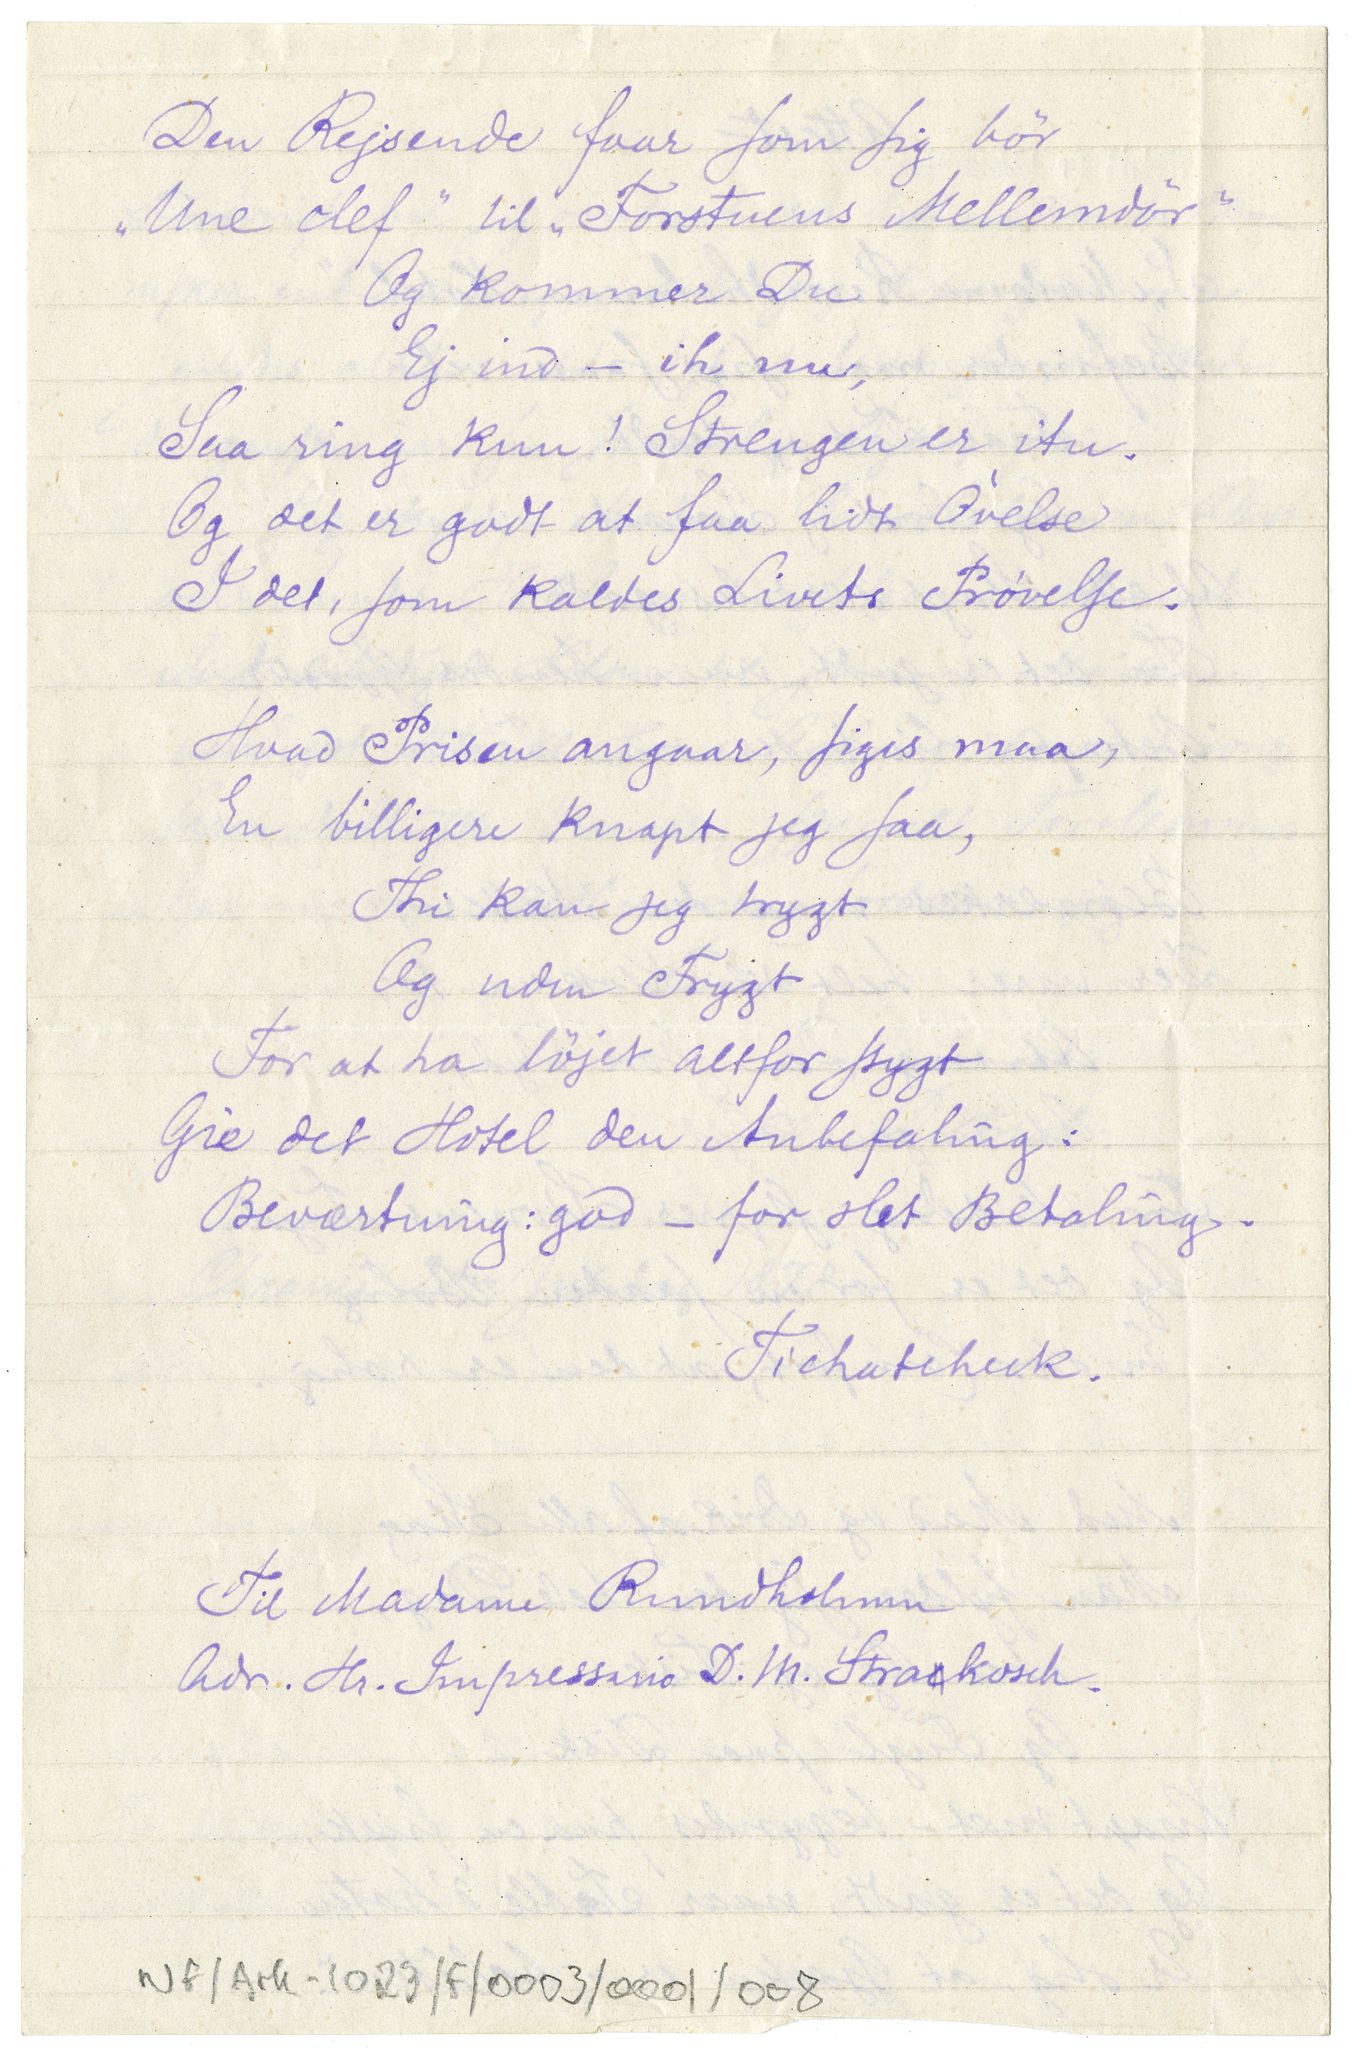 Den Rejsende faar som sig bör
„Une clef" til „Forstuens Mellemdör"
Og kommer Du
Ej ind – ih nu,
Saa ring kun! Strengen er itu.
Og det er godt at faa lidt Övelse
I det, som kaldes Livets Prövelse.
Hvad Prisen angaar, siges maa,
En billigere knapt jeg saa,
Thi kan jeg trygt
Og uden Frygt
For at ha löjet altfor stygt
Gie det Hotel den Anbefaling:
Beværtning: god – for slet Betaling.
Tichatcheck.
Til Madame Rundholmn
Adr. Hr. Impressario D. M. Strackosch.
NF/Ark-1023/F/0003/0001/008